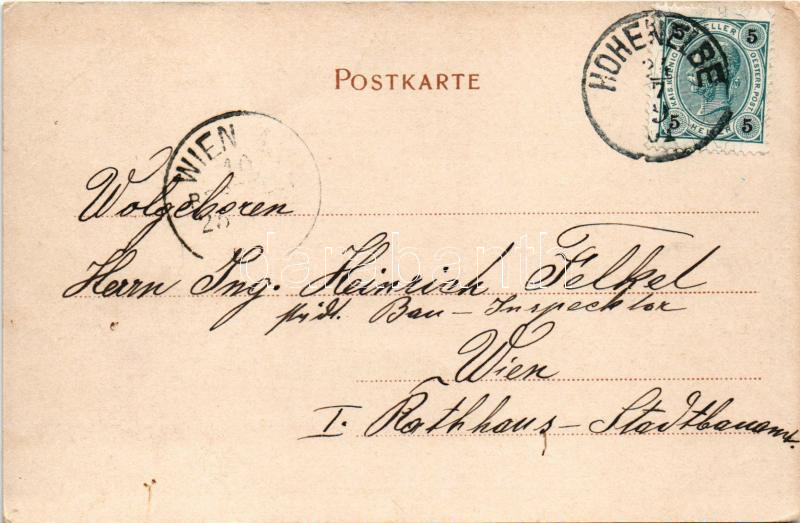 POSTKARTE
HOHENELBE
5 HELLER 5
KAIS. KÖNIGL. OESTERR. POST.
5 HELLER 5
WIEN
Wolgeboren
Herrn Ing. Heinrich Felkel
städt. Bau-Inspecktor
Wien
I. Rathhaus-Stadtbauamt.
darabanth